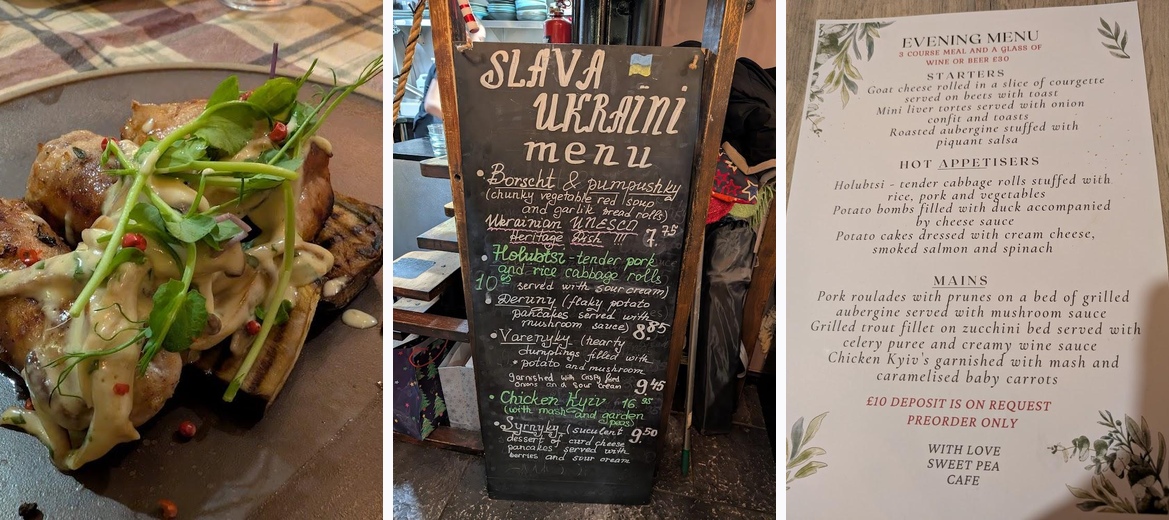 SLAVA
UKRAÏNI
menu
• Borscht & pumpushky
(chunky vegetable red soup
and garlik bread rolls)
Ukrainian UNESCO
Heritage Dish !!! 7.75
• Holubtsi - tender pork
and rice cabbage rolls
served with sour cream)
• Deruny (flaky potato
pancakes served with
mushroom sauce) 8.85
• Varenyky (hearty
dumplings filled with
• potato and mushroom
garnished with crispy fried
onions and sour cream 9.45
• Chicken Kyiv 16.95
(with mash and garden
peas)
• Syrnyky (suculent
dessert of curd cheese 9.50
pancakes served with
berries and sour cream
EVENING MENU
3 COURSE MEAL AND A GLASS OF
WINE OR BEER £30
STARTERS
Goat cheese rolled in a slice of courgette
served on beets with toast
Mini liver tortes served with onion
confit and toasts
Roasted aubergine stuffed with
piquant salsa
HOT APPETISERS
Holubtsi - tender cabbage rolls stuffed with
rice, pork and vegetables
Potato bombs filled with duck accompanied
by cheese sauce
Potato cakes dressed with cream cheese,
smoked salmon and spinach
MAINS
Pork roulades with prunes on a bed of grilled
aubergine served with mushroom sauce
Grilled trout fillet on zucchini bed served with
celery puree and creamy wine sauce
Chicken Kyiv's garnished with mash and
caramelised baby carrots
£10 DEPOSIT IS ON REQUEST
PREORDER ONLY
WITH LOVE
SWEET PEA
CAFE